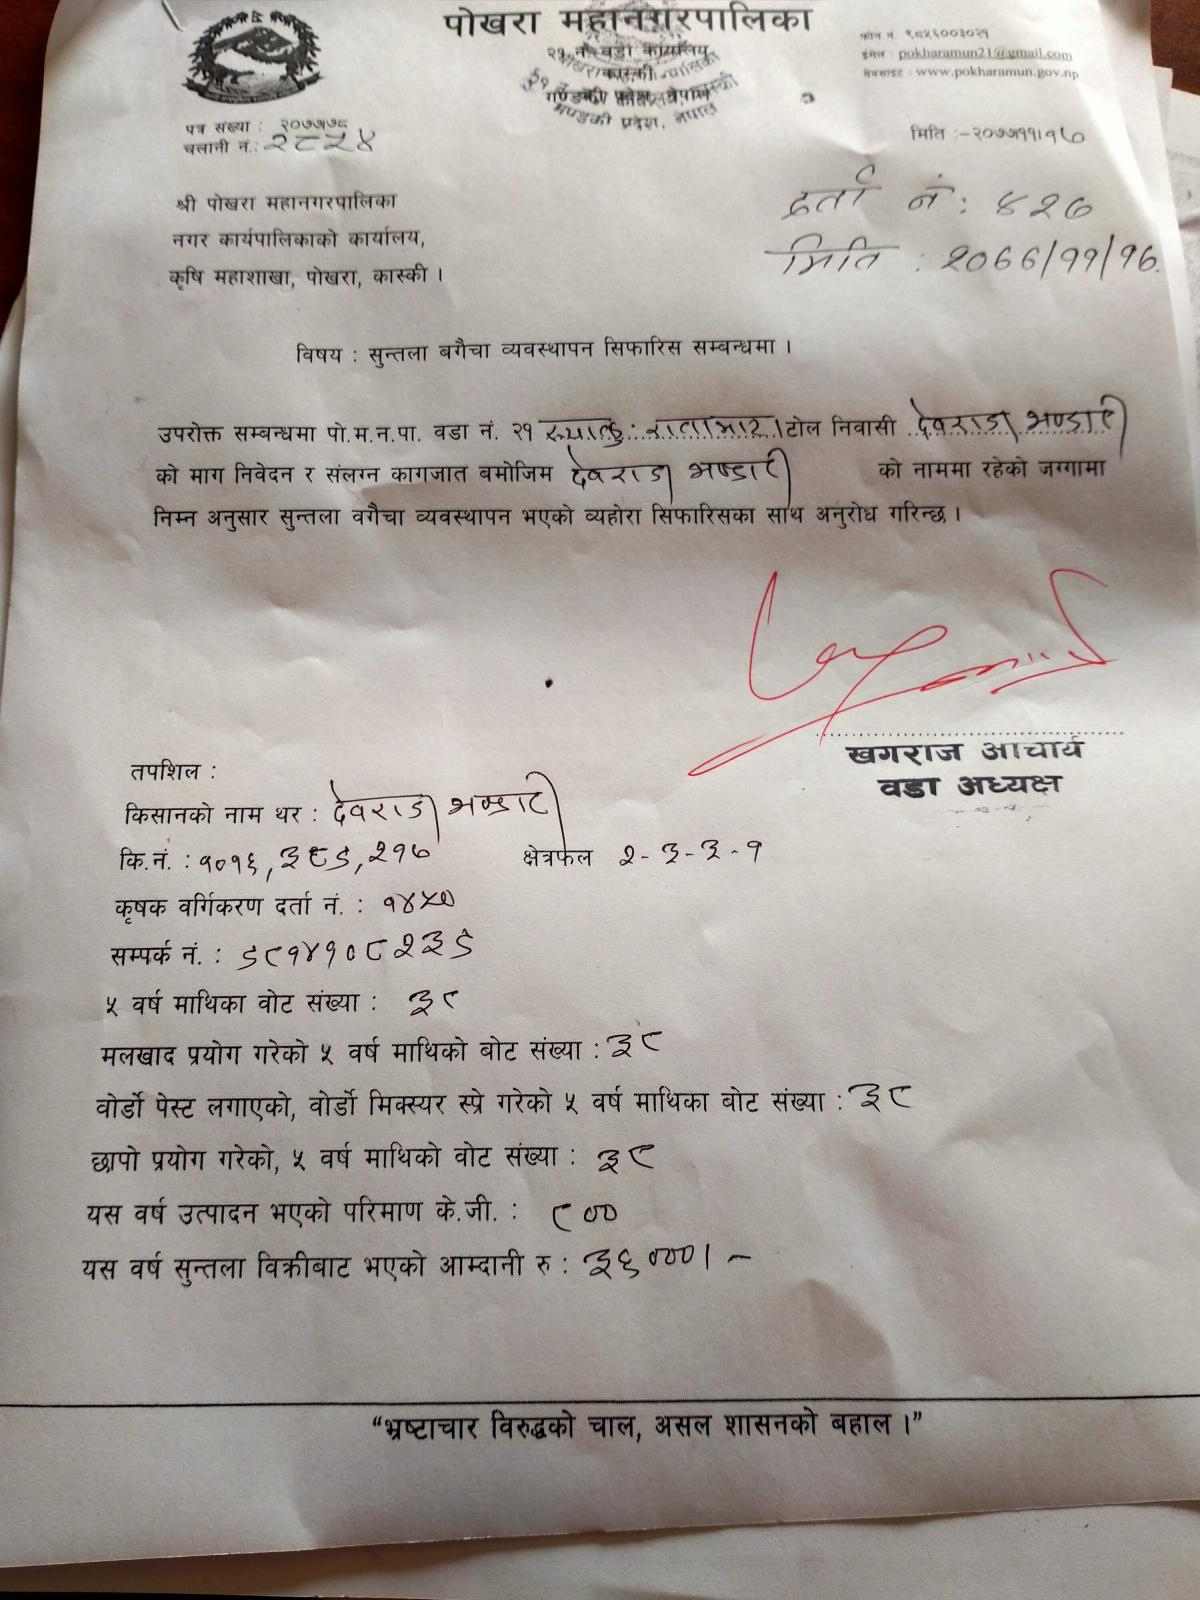 पोखरा महानगरपालिका
२१ नं. वडा कार्यालय
गण्डकी प्रदेश, नेपाल
फोन नं. ९८५६००३०२१
इमेल : pokharamun21@gmail.com
वेबसाइट : www.pokharamun.gov.np
पत्र संख्या : २०७७।७८
चलानी नं.: २८५४
मिति :-२०७७।११।१७
दर्ता नं : ४२७
मिति : २०७७/११/१७.
श्री पोखरा महानगरपालिका
नगर कार्यपालिकाको कार्यालय,
कृषि महाशाखा, पोखरा, कास्की ।
विषय : सुन्तला बगैचा व्यवस्थापन सिफारिस सम्बन्धमा ।
उपरोक्त सम्बन्धमा पो.म.न.पा. वडा नं. २१ टोल निवासी देवराज भण्डारी
को माग निवेदन र संलग्न कागजात बमोजिम देवराज भण्डारी को नाममा रहेको जग्गामा
निम्न अनुसार सुन्तला वगैचा व्यवस्थापन भएको व्यहोरा सिफारिसका साथ अनुरोध गरिन्छ ।
खगराज आचार्य
वडा अध्यक्ष
तपशिल :
किसानको नाम थर : देवराज भण्डारी
कि.नं. : १०१६, ३८९, २१७ क्षेत्रफल २-३-३-१
कृषक वर्गिकरण दर्ता नं. : १४५७
सम्पर्क नं. : ९८१४१०८२३९
५ वर्ष माथिका वोट संख्या : ३८
मलखाद प्रयोग गरेको ५ वर्ष माथिको बोट संख्या : ३८
वोर्डो पेस्ट लगाएको, वोर्डो मिक्स्यर स्प्रे गरेको ५ वर्ष माथिका बोट संख्या : ३८
छापो प्रयोग गरेको, ५ वर्ष माथिको वोट संख्या : ३८
यस वर्ष उत्पादन भएको परिमाण के.जी. : ८००
यस वर्ष सुन्तला विक्रीबाट भएको आम्दानी रु : ३६०००।-
“भ्रष्टाचार विरुद्धको चाल, असल शासनको बहाल ।”